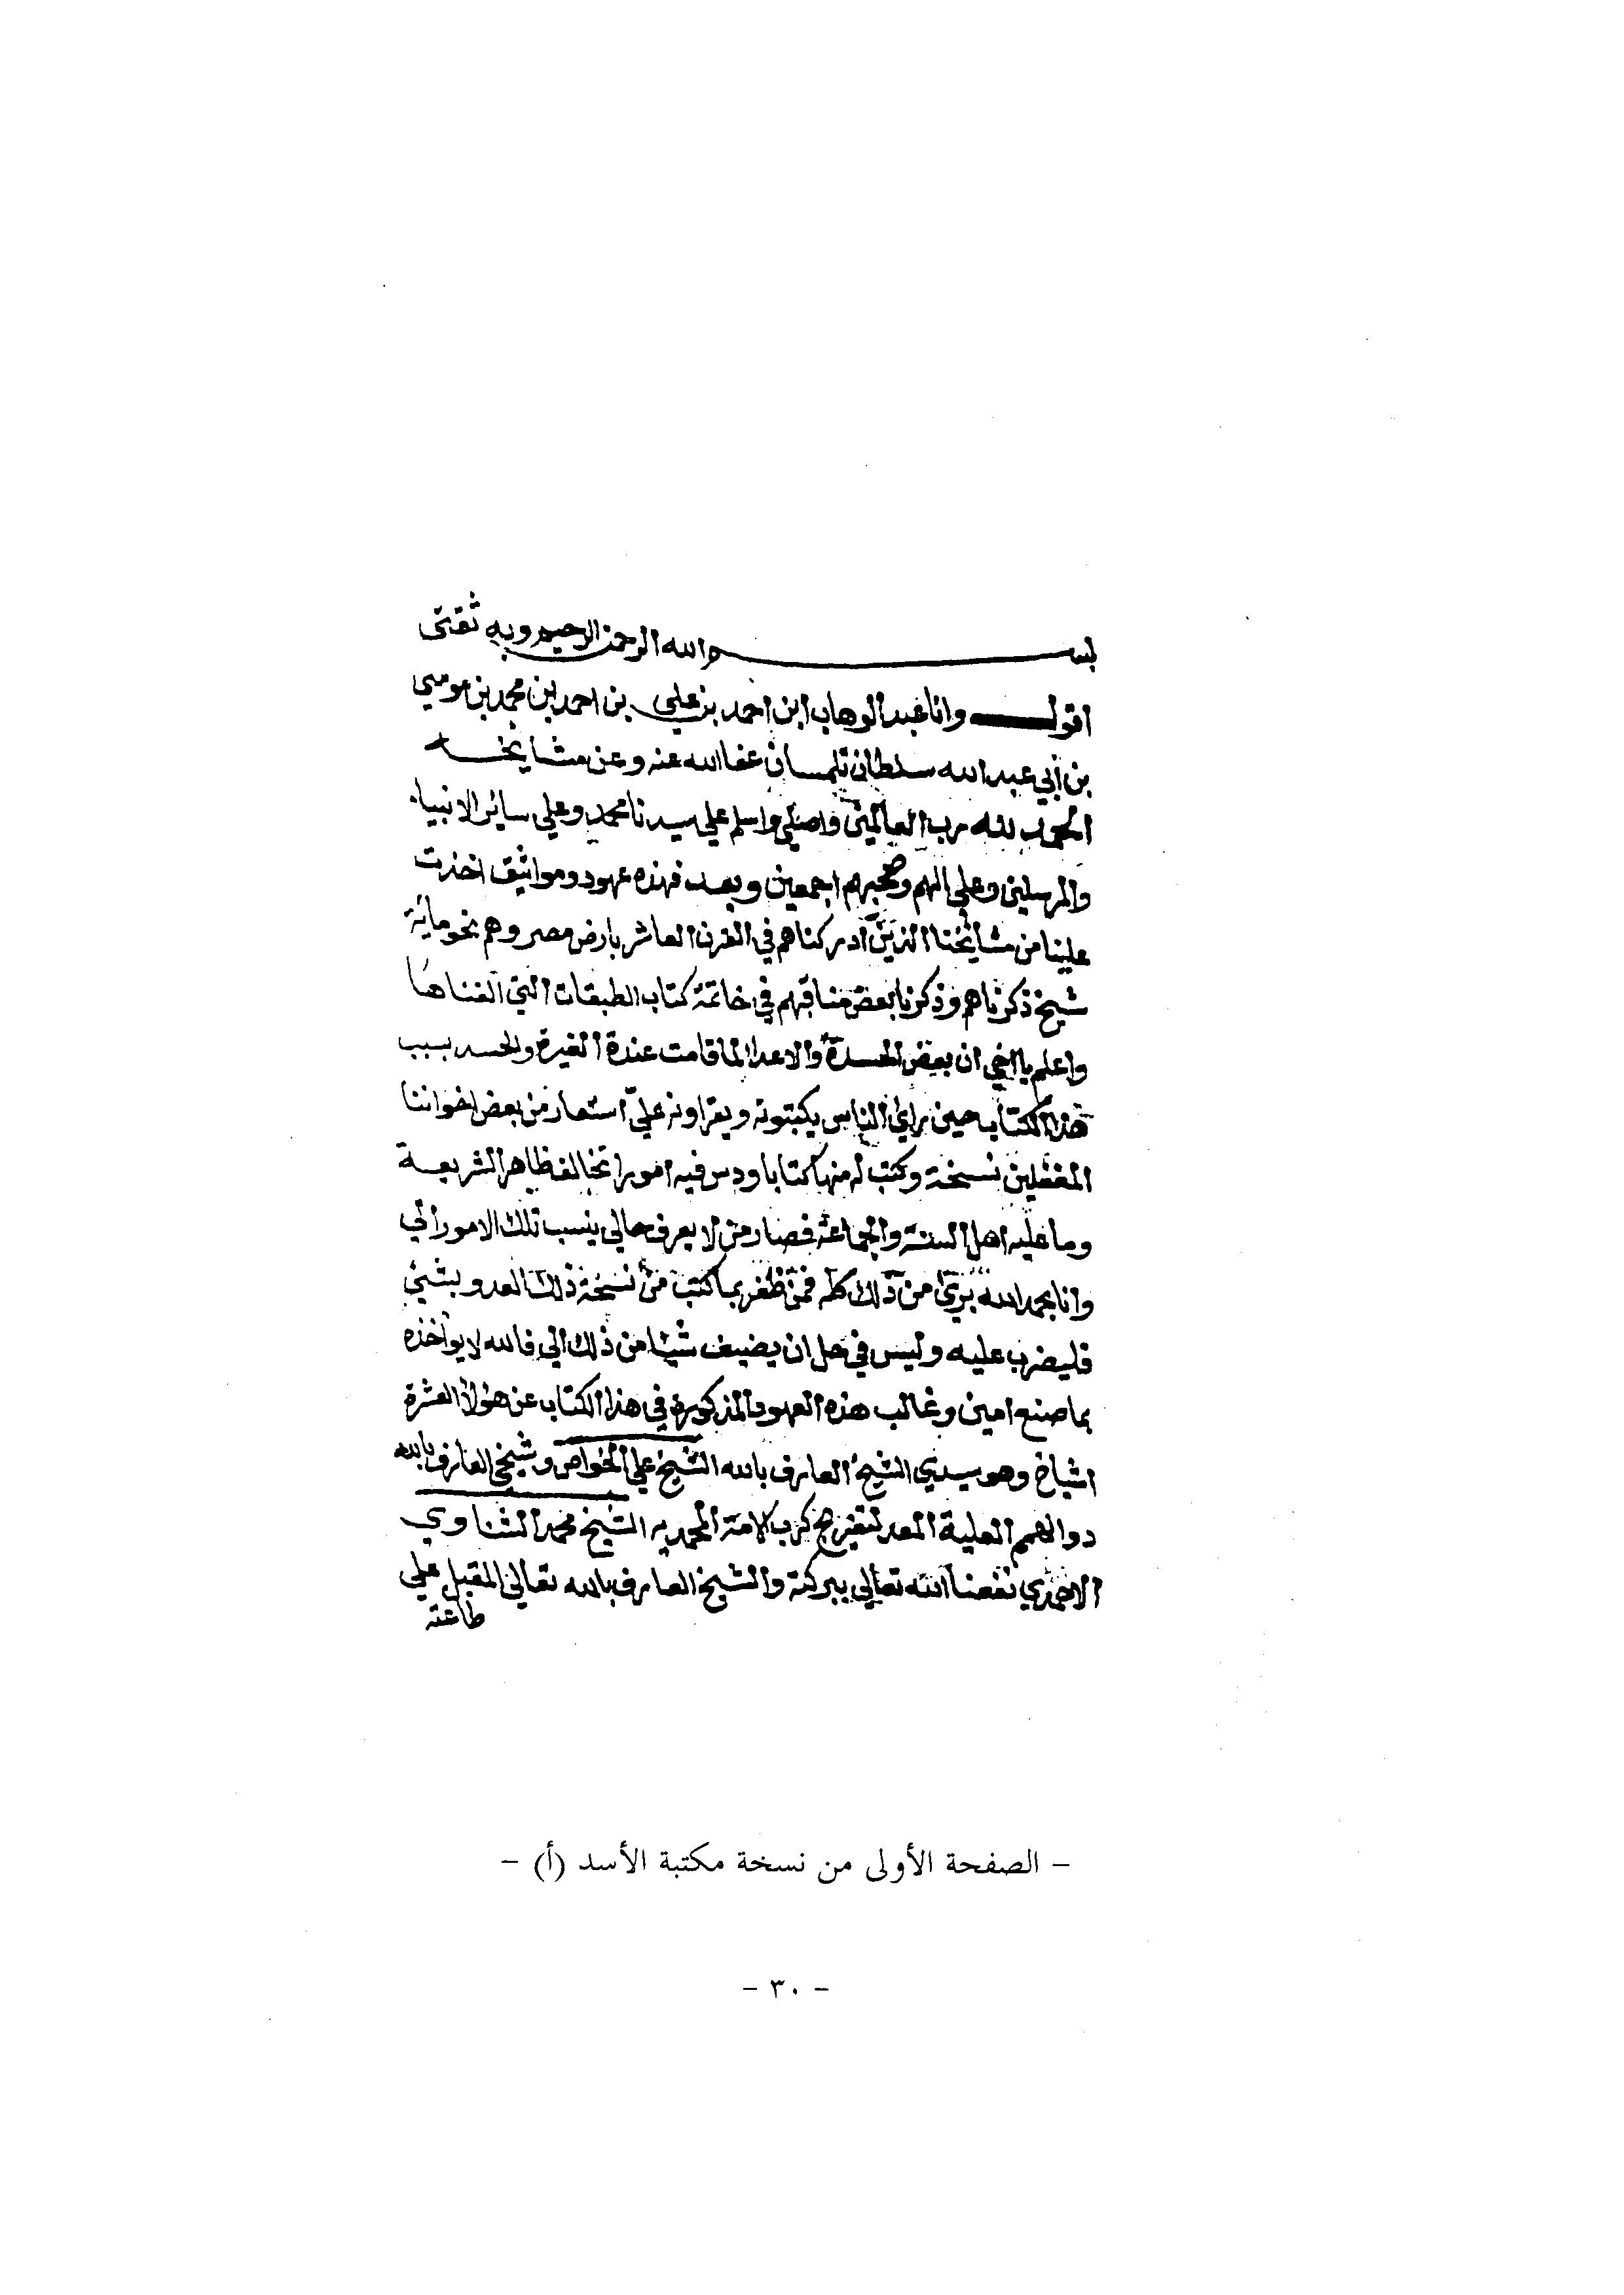 بسم الله الرحمن الرحيم وبه ثقتى
اقول وانا عبد الوهاب ابن احمد بن علي بن احمد بن محمد بن موسي
بن أبي عبد الله سلطان تلمسان عفا الله عنه وعن مشايخه
الحمد لله رب العالمين واصلي واسلم علي سيدنا محمد وعلي سائر الانبياء
والمرسلين وعلي الهم وصحبهم اجمعين وبعد فهذه عهود ومواثيق اخذت
علينا من مشائخنا الذين ادركناهم في القرن العاشر بارض مصر وهم نحو مائة
شيخ ذكرناهم وذكرنا بعض مناقبهم في خاتمة كتاب الطبقات التي الفناها
واعلم يا اخي ان بعض الحسدة والاعدا لما قامت عندة الغيرة والحسد بسبب
هذا الكتاب حين راي الناس يكتبونه ويقراونه علي استعار من بعض اخواننا
المغفلين نسخة وكتب له منها كتابا ودس فيه امورا تخالف ظاهر الشريعة
وما عليه اهل السنة والجماعة فصار من لا يعرف حالي ينسب تلك الامور الي
وانا بحمد الله بري من ذلك كله فمن ظفر بما كتب من نسخة ذلك العدو بشيء
فليضرب عليه وليس في حل ان يضيف شيئا من ذلك الي فالله لا يواخذه
بما صنع امين وغالب هذه العهود المذكورة في هذا الكتاب عن هولاء العشرة
اشياخ وهو سيدي الشيخ العارف بالله الشيخ علي الخواص وشيخي العارف بالله
ذو الهمم العلية المعد لتفريج كرب الامة المحمديه الشيخ محمد الشناوي
الاحمدي نفعنا الله تعالي ببركته والشيخ العارف بالله تعالي المقبل علي
طاعته
– الصفحة الأولى من نسخة مكتبة الأسد (أ) –
– ٣٠ –